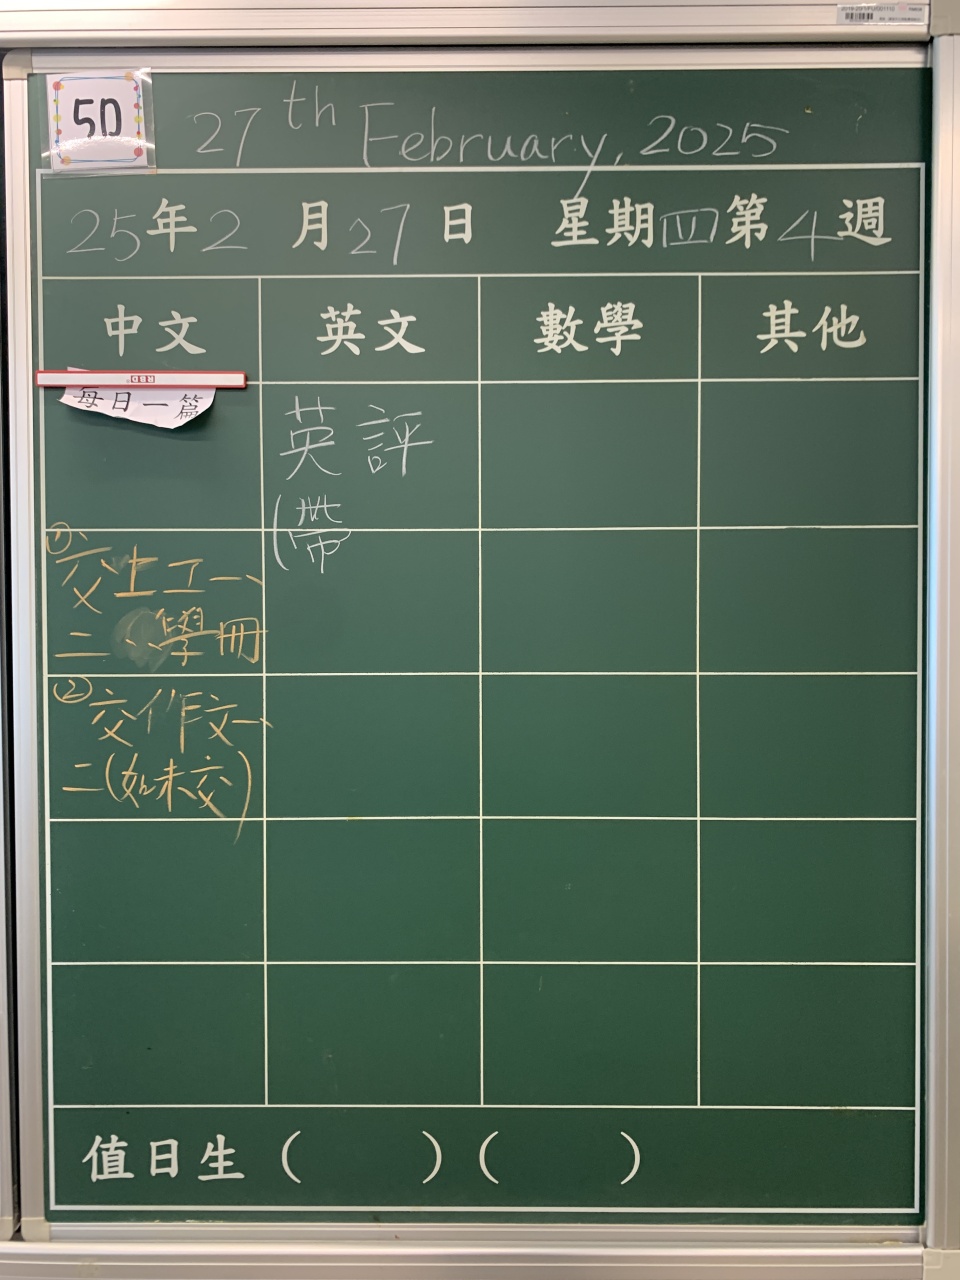 5D
27th February, 2025
25年2月27日 星期四第4週
中文
英文
數學
其他
每日一篇
英評
(帶
①交上工一、
二、學冊
②交作文一、
二(如未交)
值日生( )( )